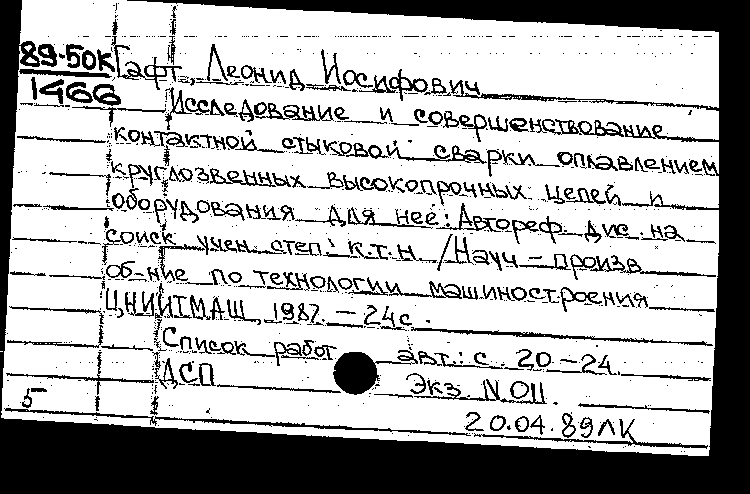 89-50К Гафт, Леонид Иосифович
1466
Исследование и совершенствование
контактной стыковой сварки оплавлением
круглозвенных высокопрочных цепей и
оборудования для неё: Автореф. дис. на
соиск. учен. степ.: к.т.н. / Науч-произв
об-ние по технологии машиностроения
ЦНИИТМАШ, 1987. - 24с.
Список работ авт.: с. 20-24.
ДСП Экз. N.011.
5
20.04.89ЛК